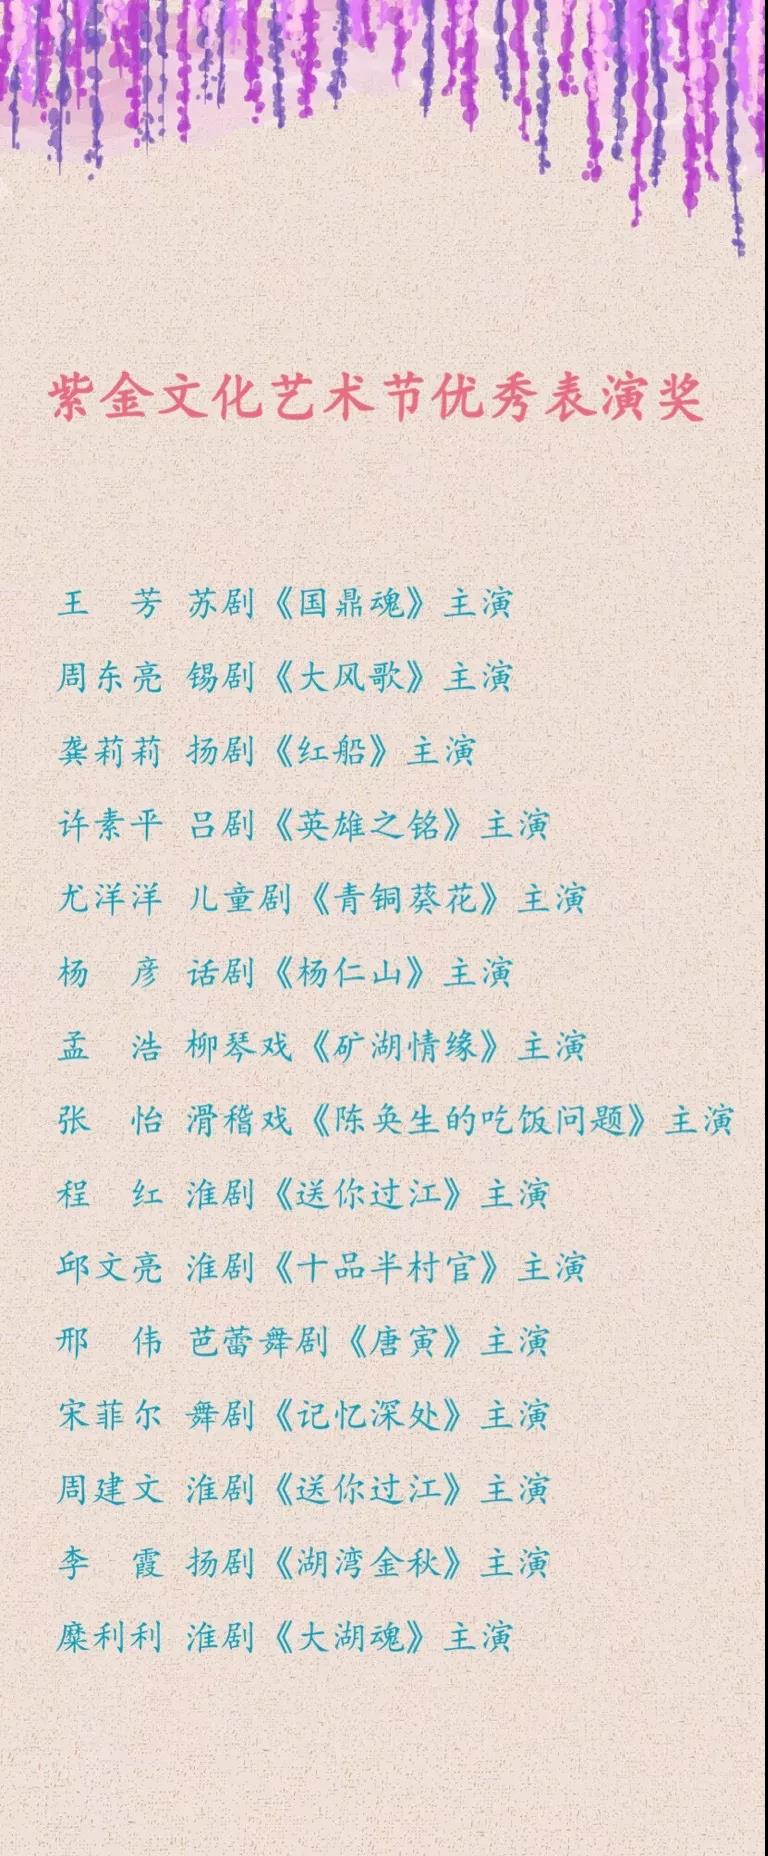 紫金文化艺术节优秀表演奖
王　芳 苏剧《国鼎魂》主演
周东亮 锡剧《大风歌》主演
龚莉莉 扬剧《红船》主演
许素平 吕剧《英雄之铭》主演
尤洋洋 儿童剧《青铜葵花》主演
杨　彦 话剧《杨仁山》主演
孟　浩 柳琴戏《矿湖情缘》主演
张　怡 滑稽戏《陈奂生的吃饭问题》主演
程　红 淮剧《送你过江》主演
邱文亮 淮剧《十品半村官》主演
邢　伟 芭蕾舞剧《唐寅》主演
宋菲尔 舞剧《记忆深处》主演
周建文 淮剧《送你过江》主演
李　霞 扬剧《湖湾金秋》主演
糜利利 淮剧《大湖魂》主演